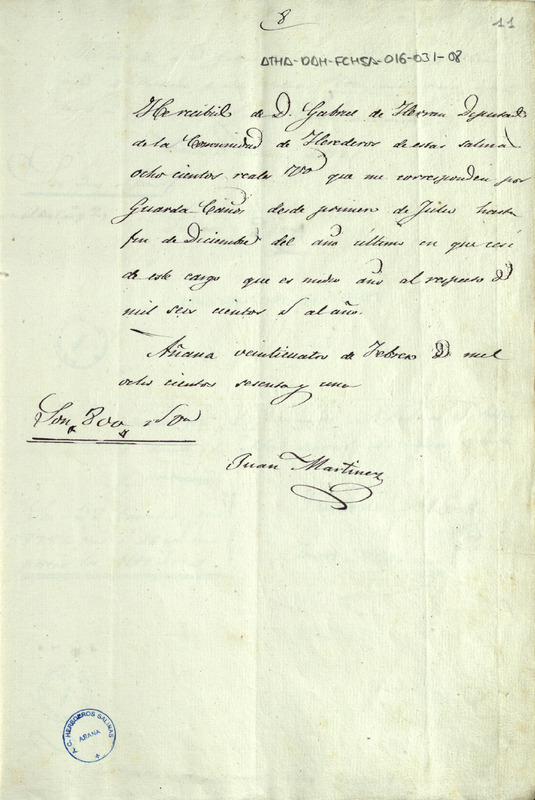 8
11
ATHA-DAH-FCHSA-016-031-08
He recibido de D. Gabriel de Herran Diputado
de la Comunidad de Herederos de estas salinas
ocho cientos reales von que me corresponden por
Guarda-Caños desde primero de Julio hasta
fin de Diciembre del año último en que cesé
de este cargo que es medio año al respecto de
mil seis cientos rs al año.
Añana veinticuatro de Febrero de mil
ocho cientos sesenta y uno
Son 800 rs von
Juan Martinez
A.C. HEREDEROS SALINAS
AÑANA